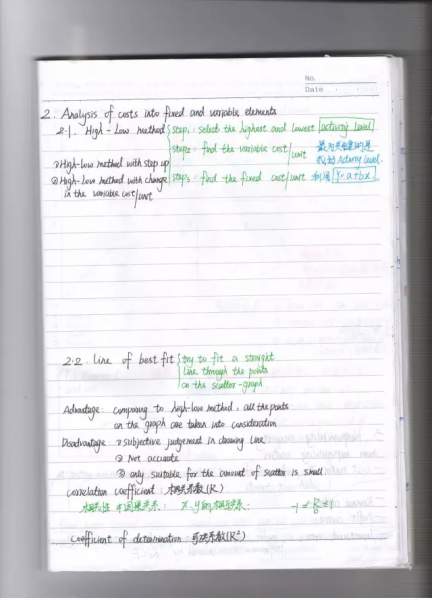 No.
Date
2. Analysis of costs into fixed and variable elements
2.1. High-Low method step1: select the highest and lowest activity level
step2: find the variable cost/unit 最为关键的是
①High-low method with step up 找到 activity level.
②High-low method with change step3: find the fixed cost/unit 利用 y=a+bx
in the variable cost/unit
2.2. Line of best fit try to fit a straight
line through the points
on the scatter-graph
Advantage: comparing to high-low method, all the points
on the graph are taken into consideration
Disadvantage: ①subjective judgement in drawing line
② Not accurate
③ only suitable for the amount of scatter is small
correlation coefficient: 相关系数(R)
相关性 不同因果关系: x, y的相关关系. -1≤R≤1
coefficient of determination: 可决系数(R²)